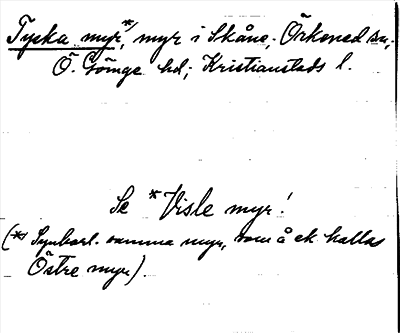 Tyska myr,* myr i Skåne, Örkened sn,
Ö. Göinge hd, Kristianstads l.
Se *Visle myr!
(* Synbarl. samma myr, som å ek. kallas
Östre myr).